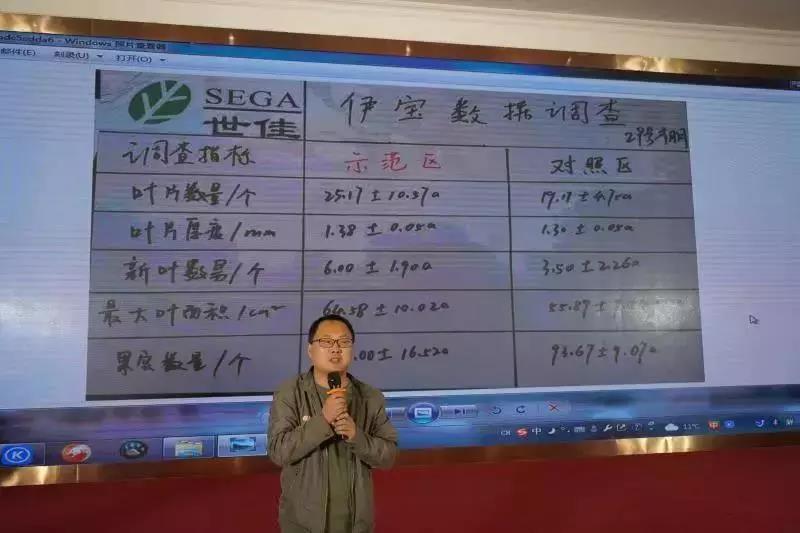 Windows 照片查看器
邮件(E) 刻录(U) 打开(O)
SEGA
世佳
伊宝数据调查
调查指标 示范区 对照区
叶片数量/个 25.17±10.37a
叶片厚度/mm 1.38±0.05a 1.30±0.05a
新叶数量/个 6.00±1.90a 3.50±2.26a
最大叶面积/cm² 64.58±10.02a 55.87±
果实数量/个 .00±16.52a 93.67±9.07a
CH 中 11℃